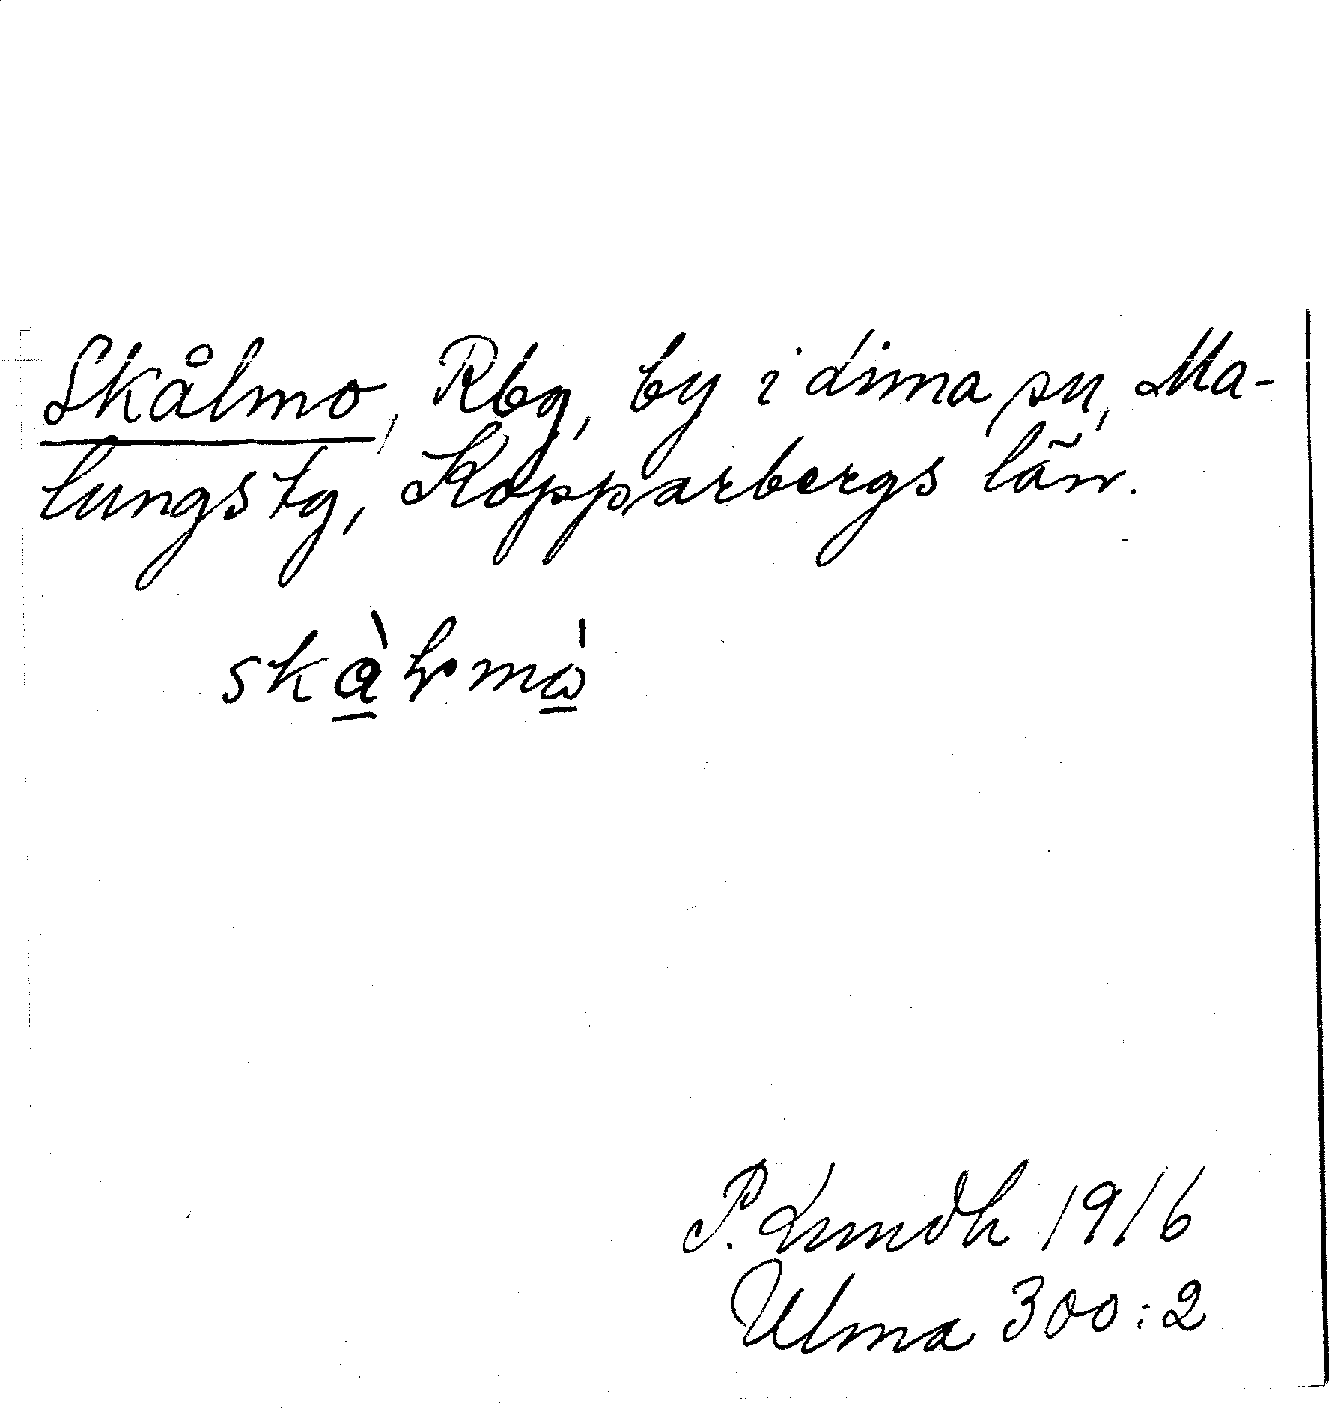 Skålmo, Rbg, by i Lima sn, Ma-
lungs tg, Kopparbergs län.
P. Lundh 1916
Ulma 300:2